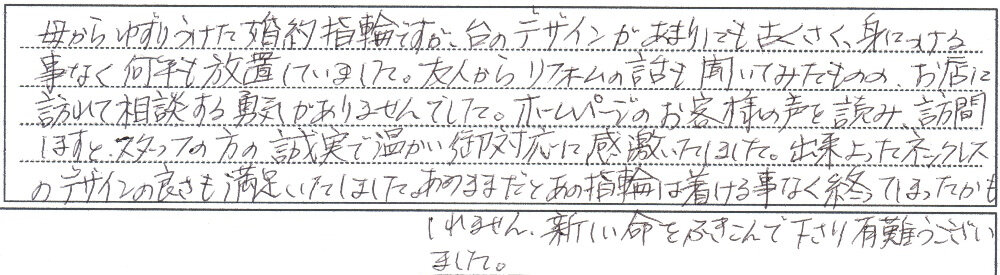 母からゆずりうけた婚約指輪ですが、台のデザインがあまりにも古くさく、身につける
事なく何年も放置していました。友人からリフォームの話も聞いてみたものの、お店に
訪れて相談する勇気がありませんでした。ホームページのお客様の声を読み、訪問
しますと、スタッフの方の誠実で温かい御対応に感激いたしました。出来上ったネックレス
のデザインの良さも満足いたしました。あのままだとあの指輪は着ける事なく終ってしまったかも
しれません、新しい命をふきこんで下さり有難うござい
ました。